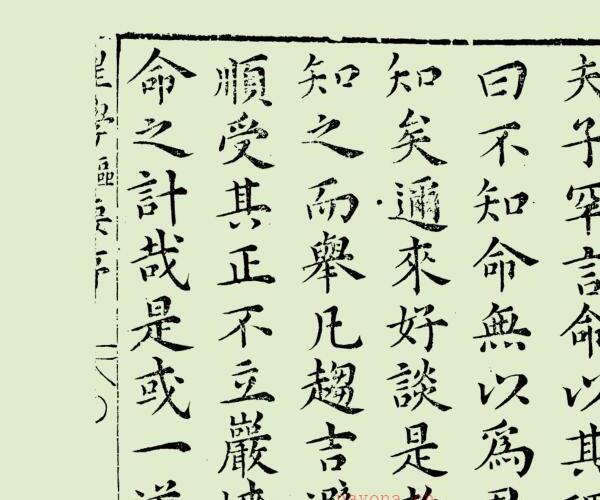 夫子罕言命以其
曰不知命無以為
知矣邇來好談是
知之而舉凡趨吉
順受其正不立巖
命之計哉是或一道
星學樞要序